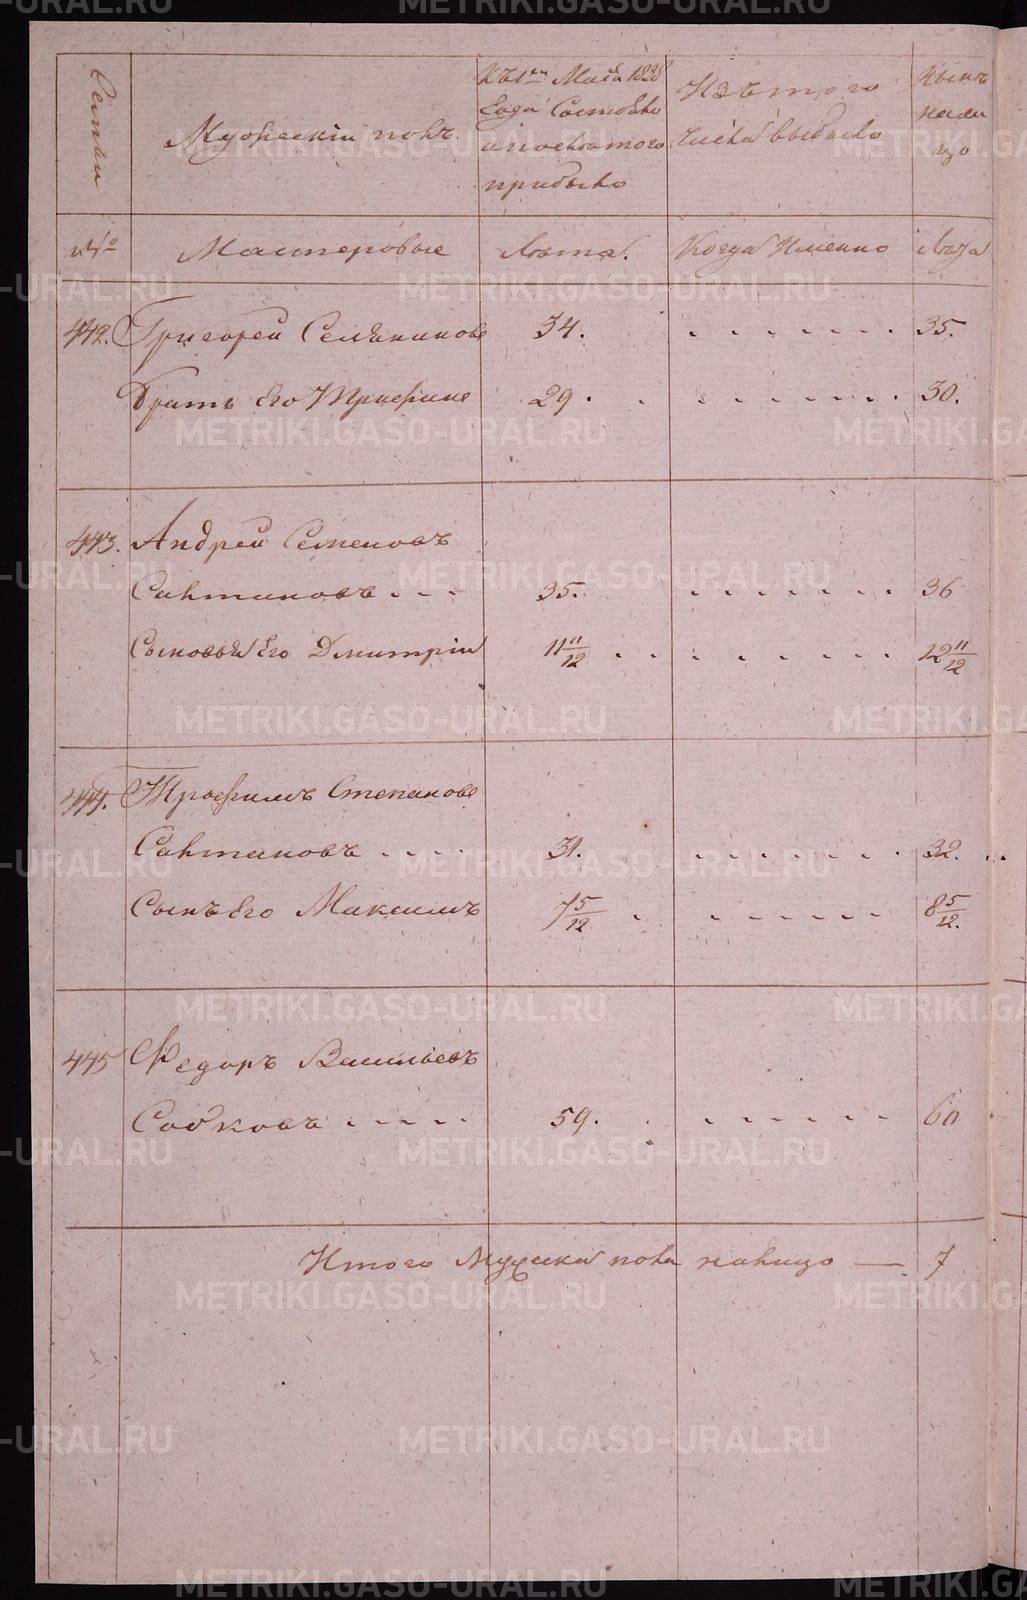 Семьи
Мужескій полъ
Къ 1му Маія 1828
года состояло
и после того
прибыло
Изъ того
числа выбыло
Нынѣ
нали
цо
№
Мастеровые
Лѣта.
Когда Именно
Лѣта
442. Григорей 34. 35.
Братъ Его 29. 30.
443. Андрей Семеновъ
35. 36
Сыновья Его Дмитрій 11 11/12 12 11/12
444. Трофимъ Степановъ
31. 32.
Сынъ Его Максимъ 7 5/12 8 5/12.
445 Федоръ Васильевъ
59. 60
Итого Мужеска пола налицо — 7
METRIKI.GASO-URAL.RU